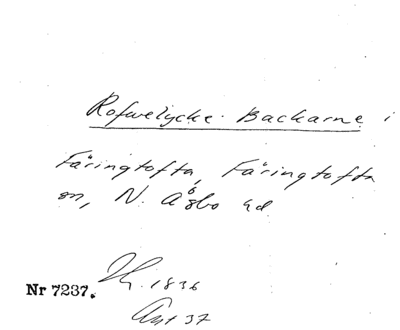 Rofwelycke-Backarne i
Färingtofta, Färingtofta
sn, N. Åsbo hd
Hg. 1836
Nr 7237.
Ant 37